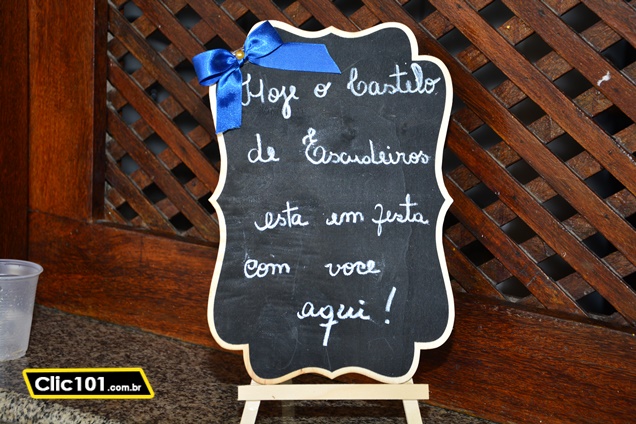 Hoje o Castelo
de Escudeiros
esta em festa
com voce
aqui!
Clic101.com.br